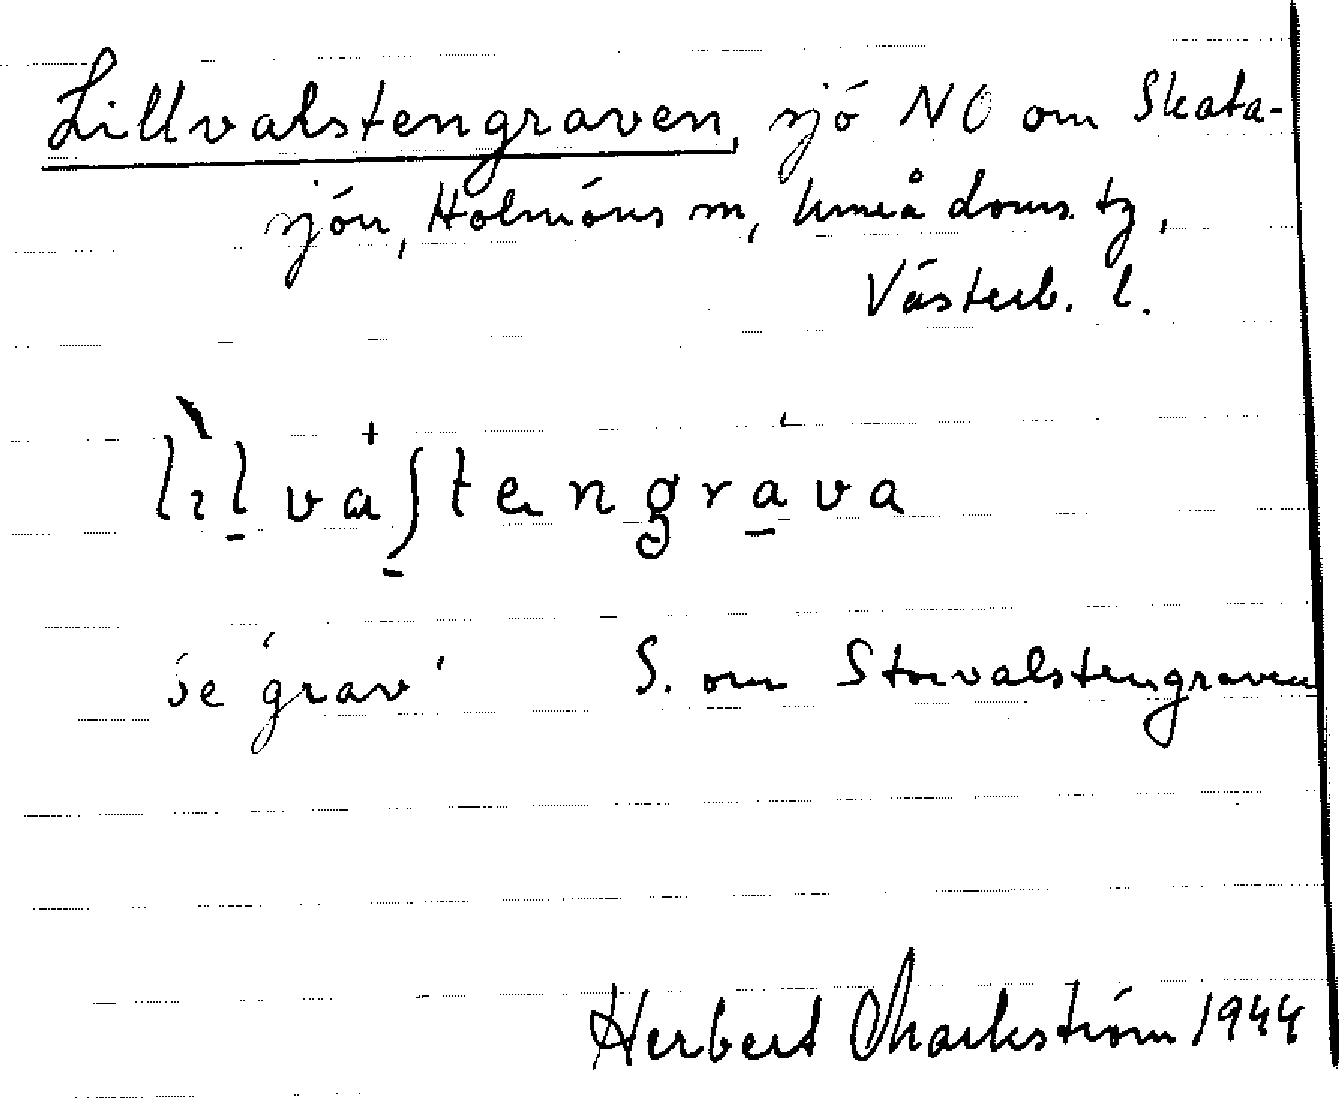 Lillvalstengraven, sjö NO om Skata-
sjön, Holmöns sn, Umeå doms. tg,
Västerb. l.
se 'grav' S. om Storvalstengraven
Herbert Markström 1944